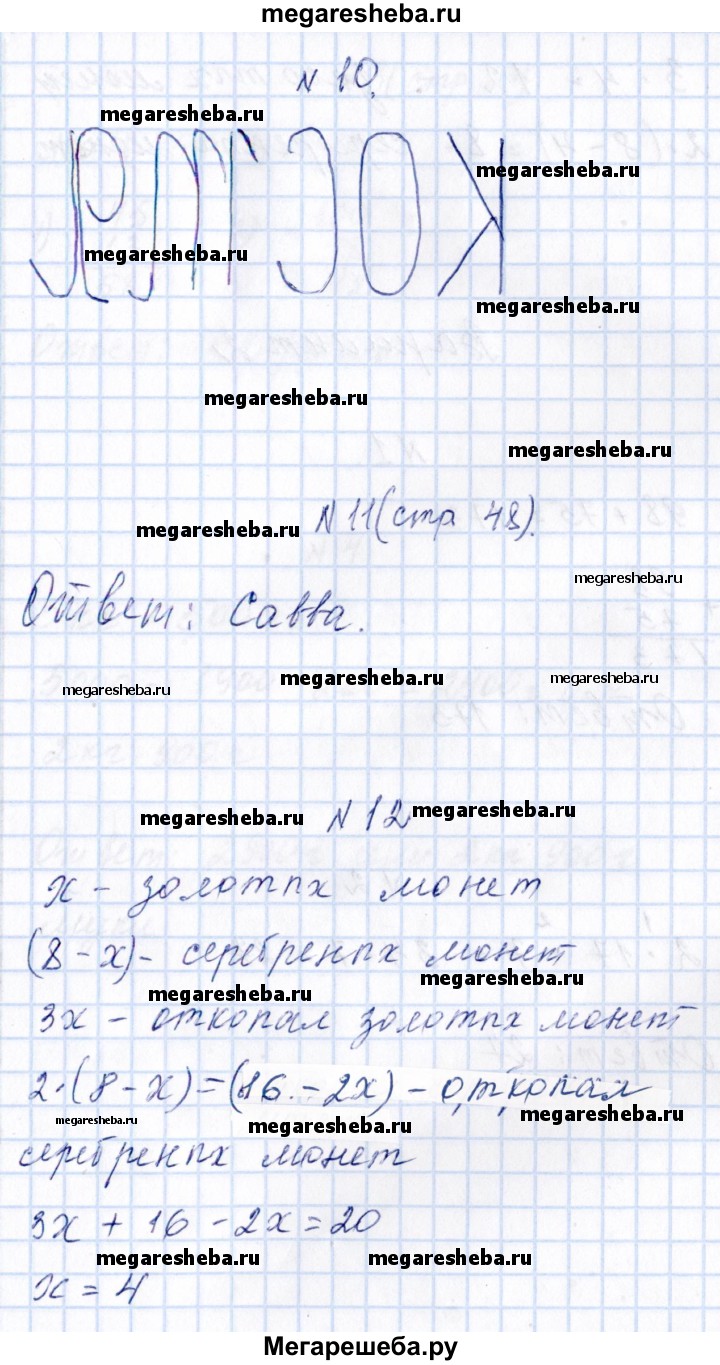 megaresheba.ru
N 10.
megaresheba.ru
КОСТЯ
megaresheba.ru
megaresheba.ru
megaresheba.ru
megaresheba.ru
megaresheba.ru
N 11 (стр 48).
megaresheba.ru
megaresheba.ru
Ответ: Савва.
megaresheba.ru
megaresheba.ru
megaresheba.ru
N 12
megaresheba.ru
megaresheba.ru
x - золотых монет
(8 - x) - серебреных монет
megaresheba.ru
megaresheba.ru
3x - откопал золотых монет
2·(8 - x) = (16 - 2x) - откопал
megaresheba.ru
megaresheba.ru
megaresheba.ru
серебреных монет
3x + 16 - 2x = 20
megaresheba.ru
megaresheba.ru
x = 4
Мегарешеба.ру